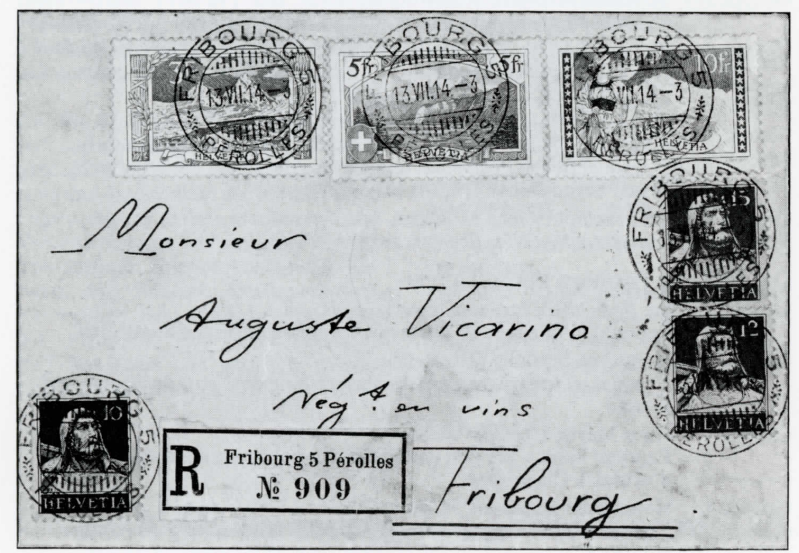 FRIBOURG 5
13.VII.14.-3
PÉROLLES
HELVETIA
5 fr 5 fr
FRIBOURG 5
13.VII.14.-3
PÉROLLES
HELVETIA
10 fr
FRIBOURG 5
VII.14.-3
PÉROLLES
HELVETIA
15
FRIBOURG 5
HELVETIA
Monsieur
Auguste Vicarino
12
5
PÉROLLES
HELVETIA
Nég.t en vins
10
FRIBOURG 5
HELVETIA
R Fribourg 5 Pérolles
№ 909
Fribourg